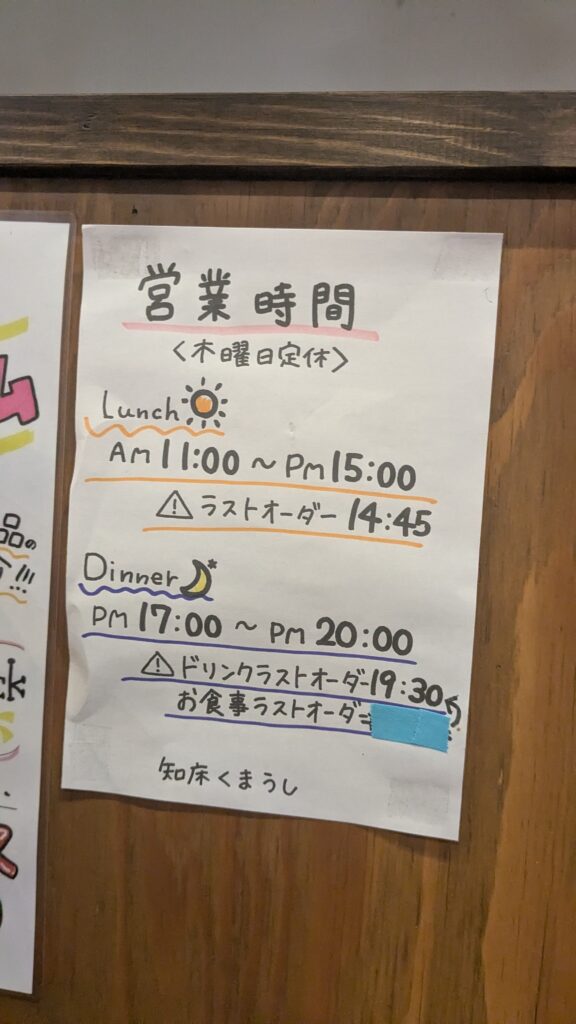 営業時間
<木曜日定休>
Lunch
Am 11:00 ~ Pm 15:00
⚠ ラストオーダー 14:45
Dinner
PM 17:00 ~ PM 20:00
⚠ ドリンクラストオーダー 19:30
お食事ラストオーダー
知床くまうし
品の
!!!
ck